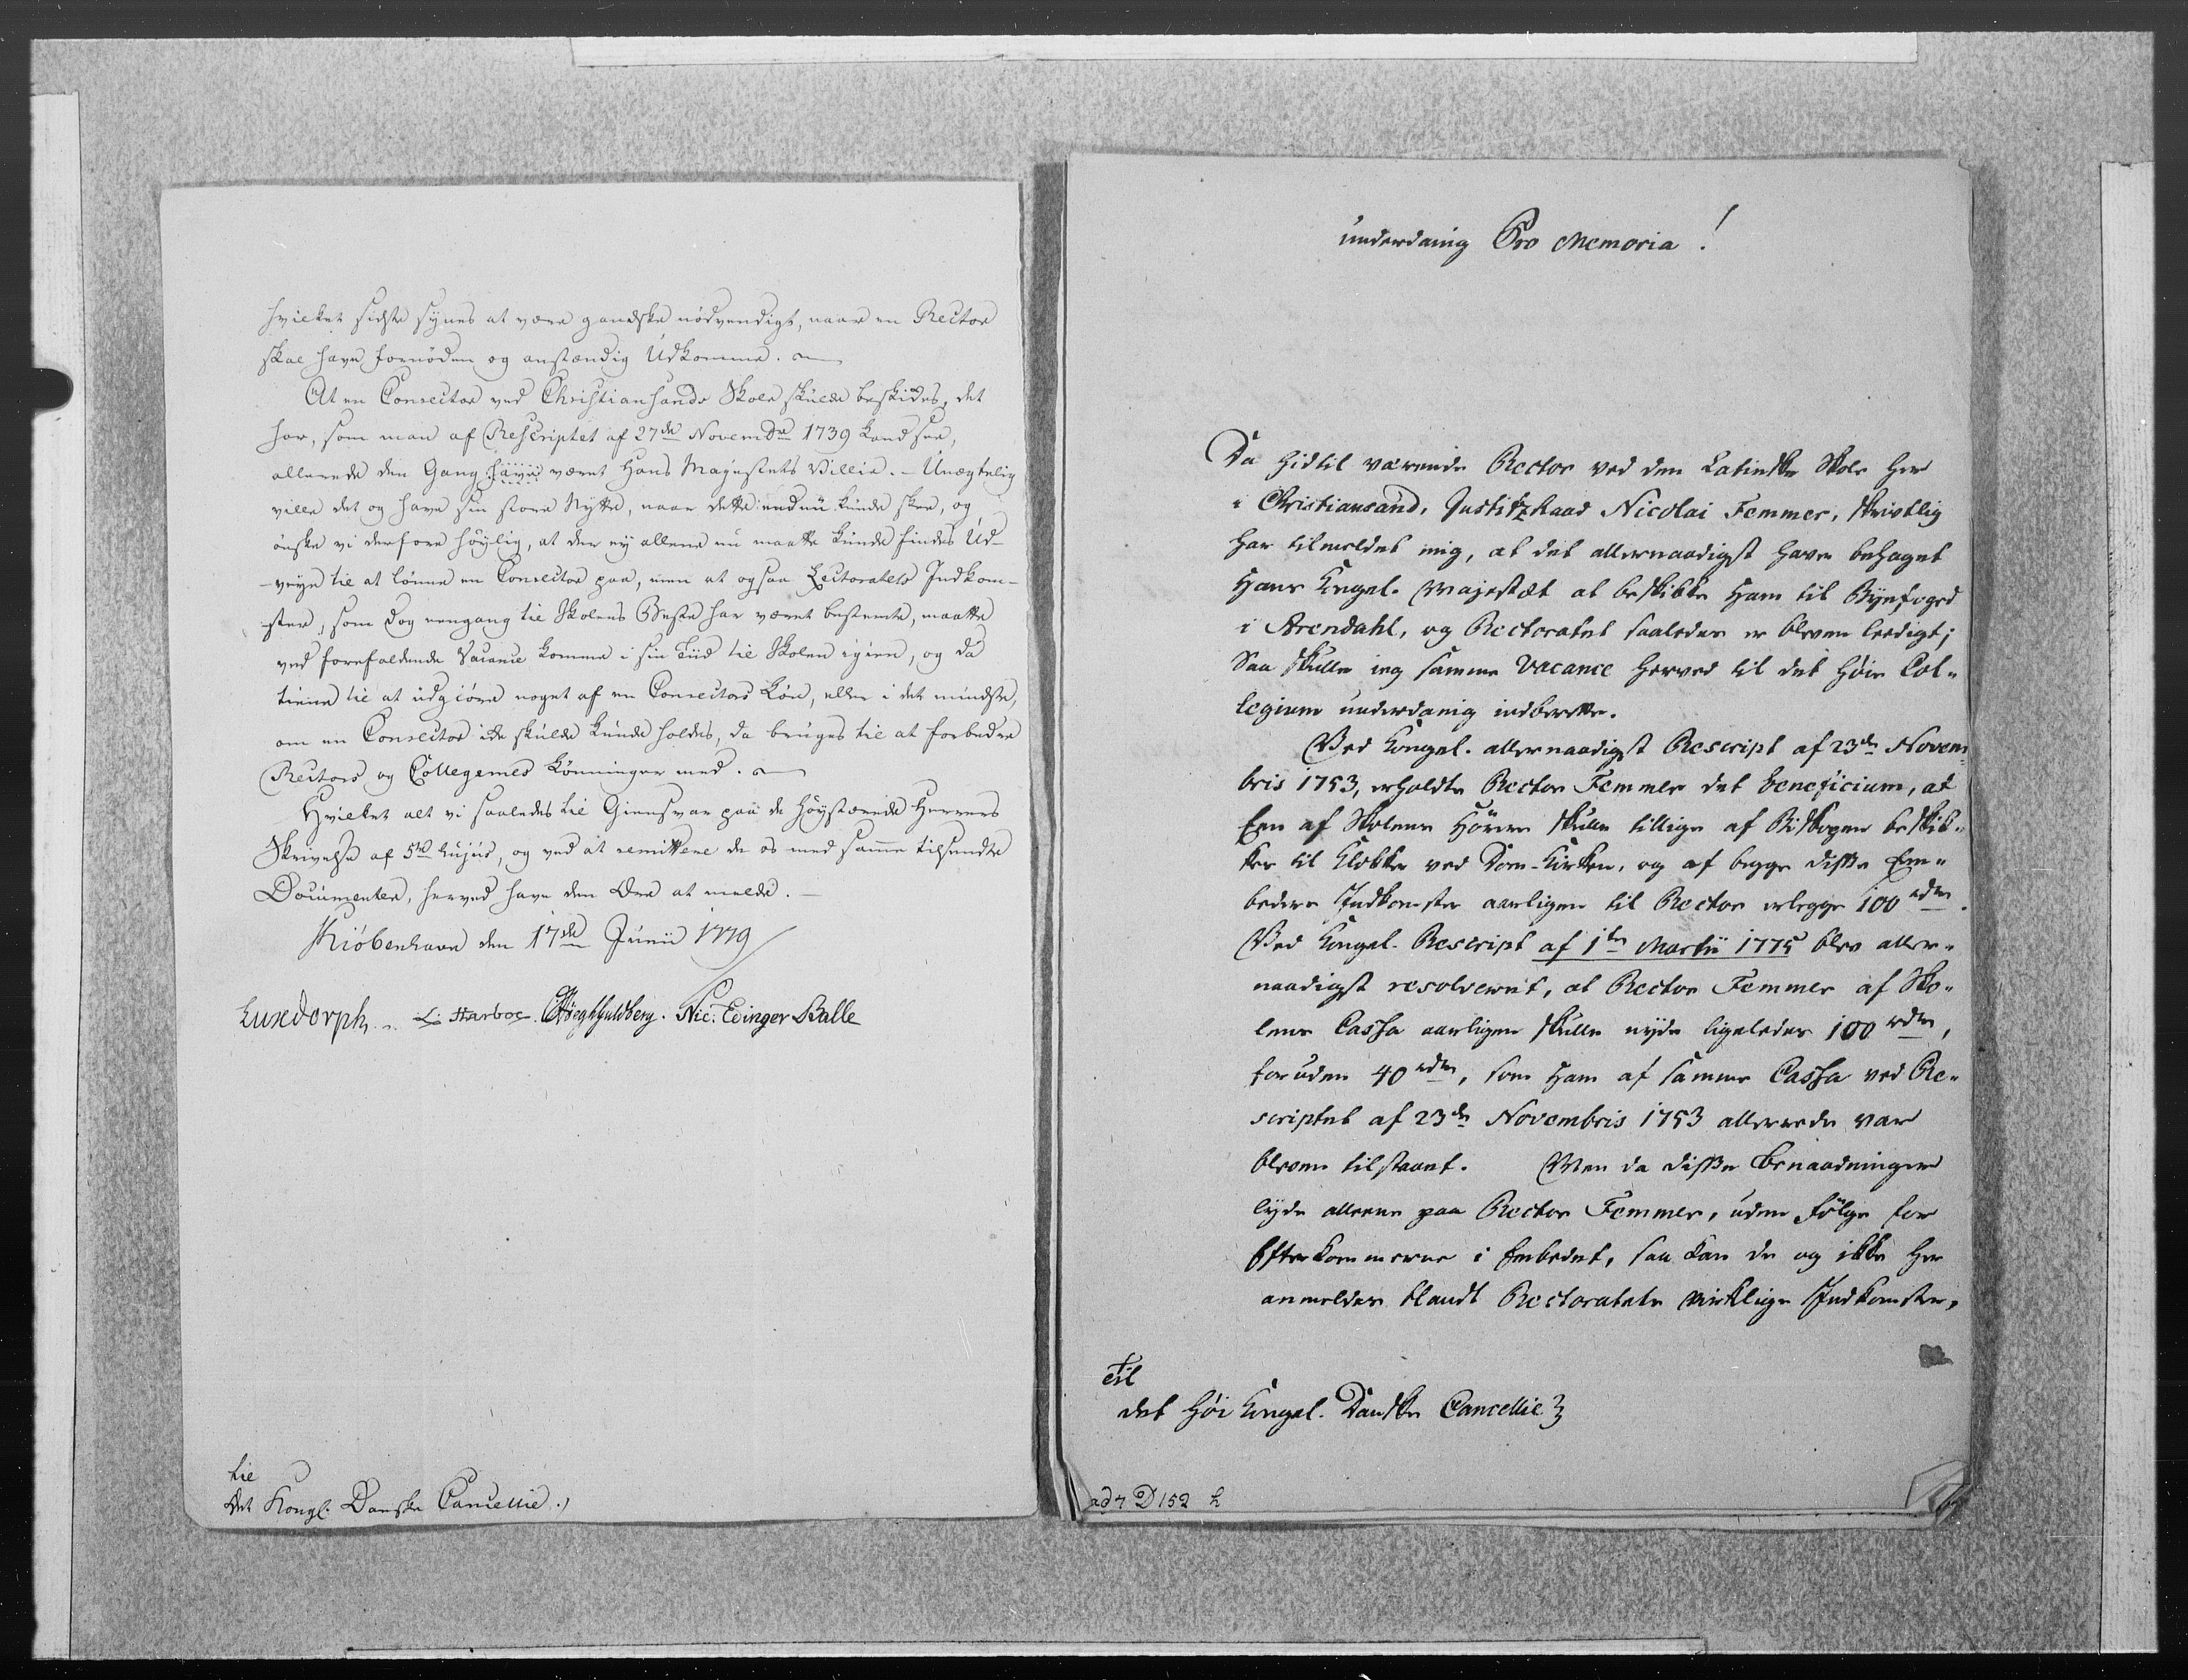 hvilket sidste synes at være gandske nödvendigt, naar en Rector
skal have fornöden og anstændig Udkomme.
At en Conrector ved Christiansands Skole skulde beskikkes, det
har, som man af Rescriptet af 27de Novembr 1739 kand see,
allerede den Gang været Hans Majestets Villie. - Unægtelig
ville det og have sin store Nytte, naar dette endnu kunde skee, og
önske vi derfore höylig, at der ey allene nu maatte kunde findes Ud-
-veye til at lönne en Conrector paa, men at ogsaa Lectoratets Indkom-
ster, som dog eengang til Skolens Beste har været bestemte, maatte
ved forefaldende Vacance komme i sin Tiid til Skolen igien, og da
tiene til at udgiöre noget af en Conrectors Lön, eller i det mindste,
om en Conrector icke skulde kunde holdes, da bruges til at forbedre
Rectors og Collegernes Lönninger med.
Hvilket alt vi saaledes til Giensvar paa de Höystærede Herrers
Skrivelse af 5te hujus, og ved at remittere de os med samme tilsendte
Documenter, herved have den Ære at melde. -
Kiöbenhavn den 17de Junii 1779
Luxdorph. L: Harboe. OHöeghGuldberg. Nic: Edinger Balle
til
Det Kongl. Danske Cancellie.
underdanig Pro Memoria!
Da hidtil værende Rector ved den Latinske Skole her
i Christiansand, Justitzraad Nicolai Femmer, skriftlig
har tilmeldet mig, at det allernaadigst haver behaget
Hans Kongel. Majestæt at beskikke Ham til Byefoged
i Arendahl, og Rectoratet saaledes er bleven leedigt;
Saa skulle ieg samme Vacance herved til det höie Col-
legium underdanig indberette.
Ved Kongel. allernaadigst Rescript af 23de Novem-
bris 1753, erholdte Rector Femmer det beneficium, at
Een af Skolens Hörere skulle tillige af Biskopen beskik-
kes til Klokker ved Dom-Kirken, og af begge disse Em-
beders Indkomster aarligen til Rector erlegge 100 rdlr.
Ved Kongel. Rescript af 1ste Martii 1775 blev aller-
naadigst resolveret, at Rector Femmer af Sko-
lens Cassa aarligen skulle nyde ligeledes 100 rdlr,
foruden 40 rdlr, som Ham af samme Cassa ved Re-
scriptet af 23de Novembris 1753 allerede var
bleven tilstaaet. Men da disse Benaadninger
lyde alleene paa Rector Femmer, uden Fölge for
Efterkommerne i Embedet, saa kan de og ikke her
anmeldes blandt Rectoratets virklige Indkomster,
Til
det höi Kongel. Danske Cancellie
ad 7 D 152 h